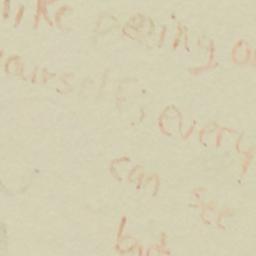 like peeing o
yourself; every
can see
but